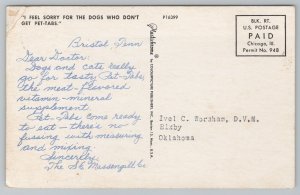 "I FEEL SORRY FOR THE DOGS WHO DON'T
GET PET-TABS."
P16099
Bristol Tenn
Dear Doctor:
Dogs and cats really
go for tasty Pet-Tabs,
the most-flavored
vitamin-mineral
supplement.
Pet-Tabs come ready
to eat - there's no
fussing with measuring
and mixing.
Sincerely,
The S.E. Massengill Co.
BLK. RT.
U.S. POSTAGE
PAID
Chicago, Ill.
Permit No. 948
Ivel C. Worsham, D.V.M.
Bixby
Oklahoma